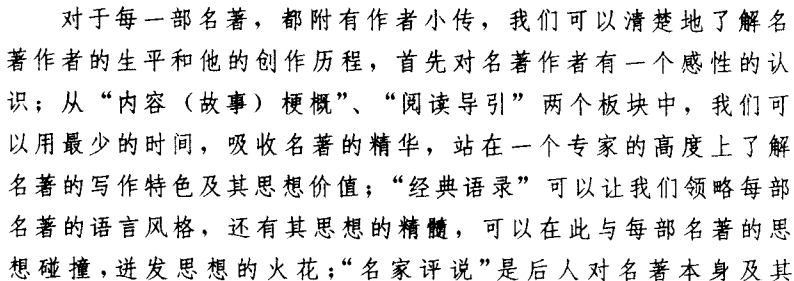 对于每一部名著，都附有作者小传，我们可以清楚地了解名
著作者的生平和他的创作历程，首先对名著作者有一个感性的认
识；从“内容（故事）梗概”、“阅读导引”两个板块中，我们可
以用最少的时间，吸收名著的精华，站在一个专家的高度上了解
名著的写作特色及其思想价值；“经典语录”可以让我们领略每部
名著的语言风格，还有其思想的精髓，可以在此与每部名著的思
想碰撞，迸发思想的火花；“名家评说”是后人对名著本身及其